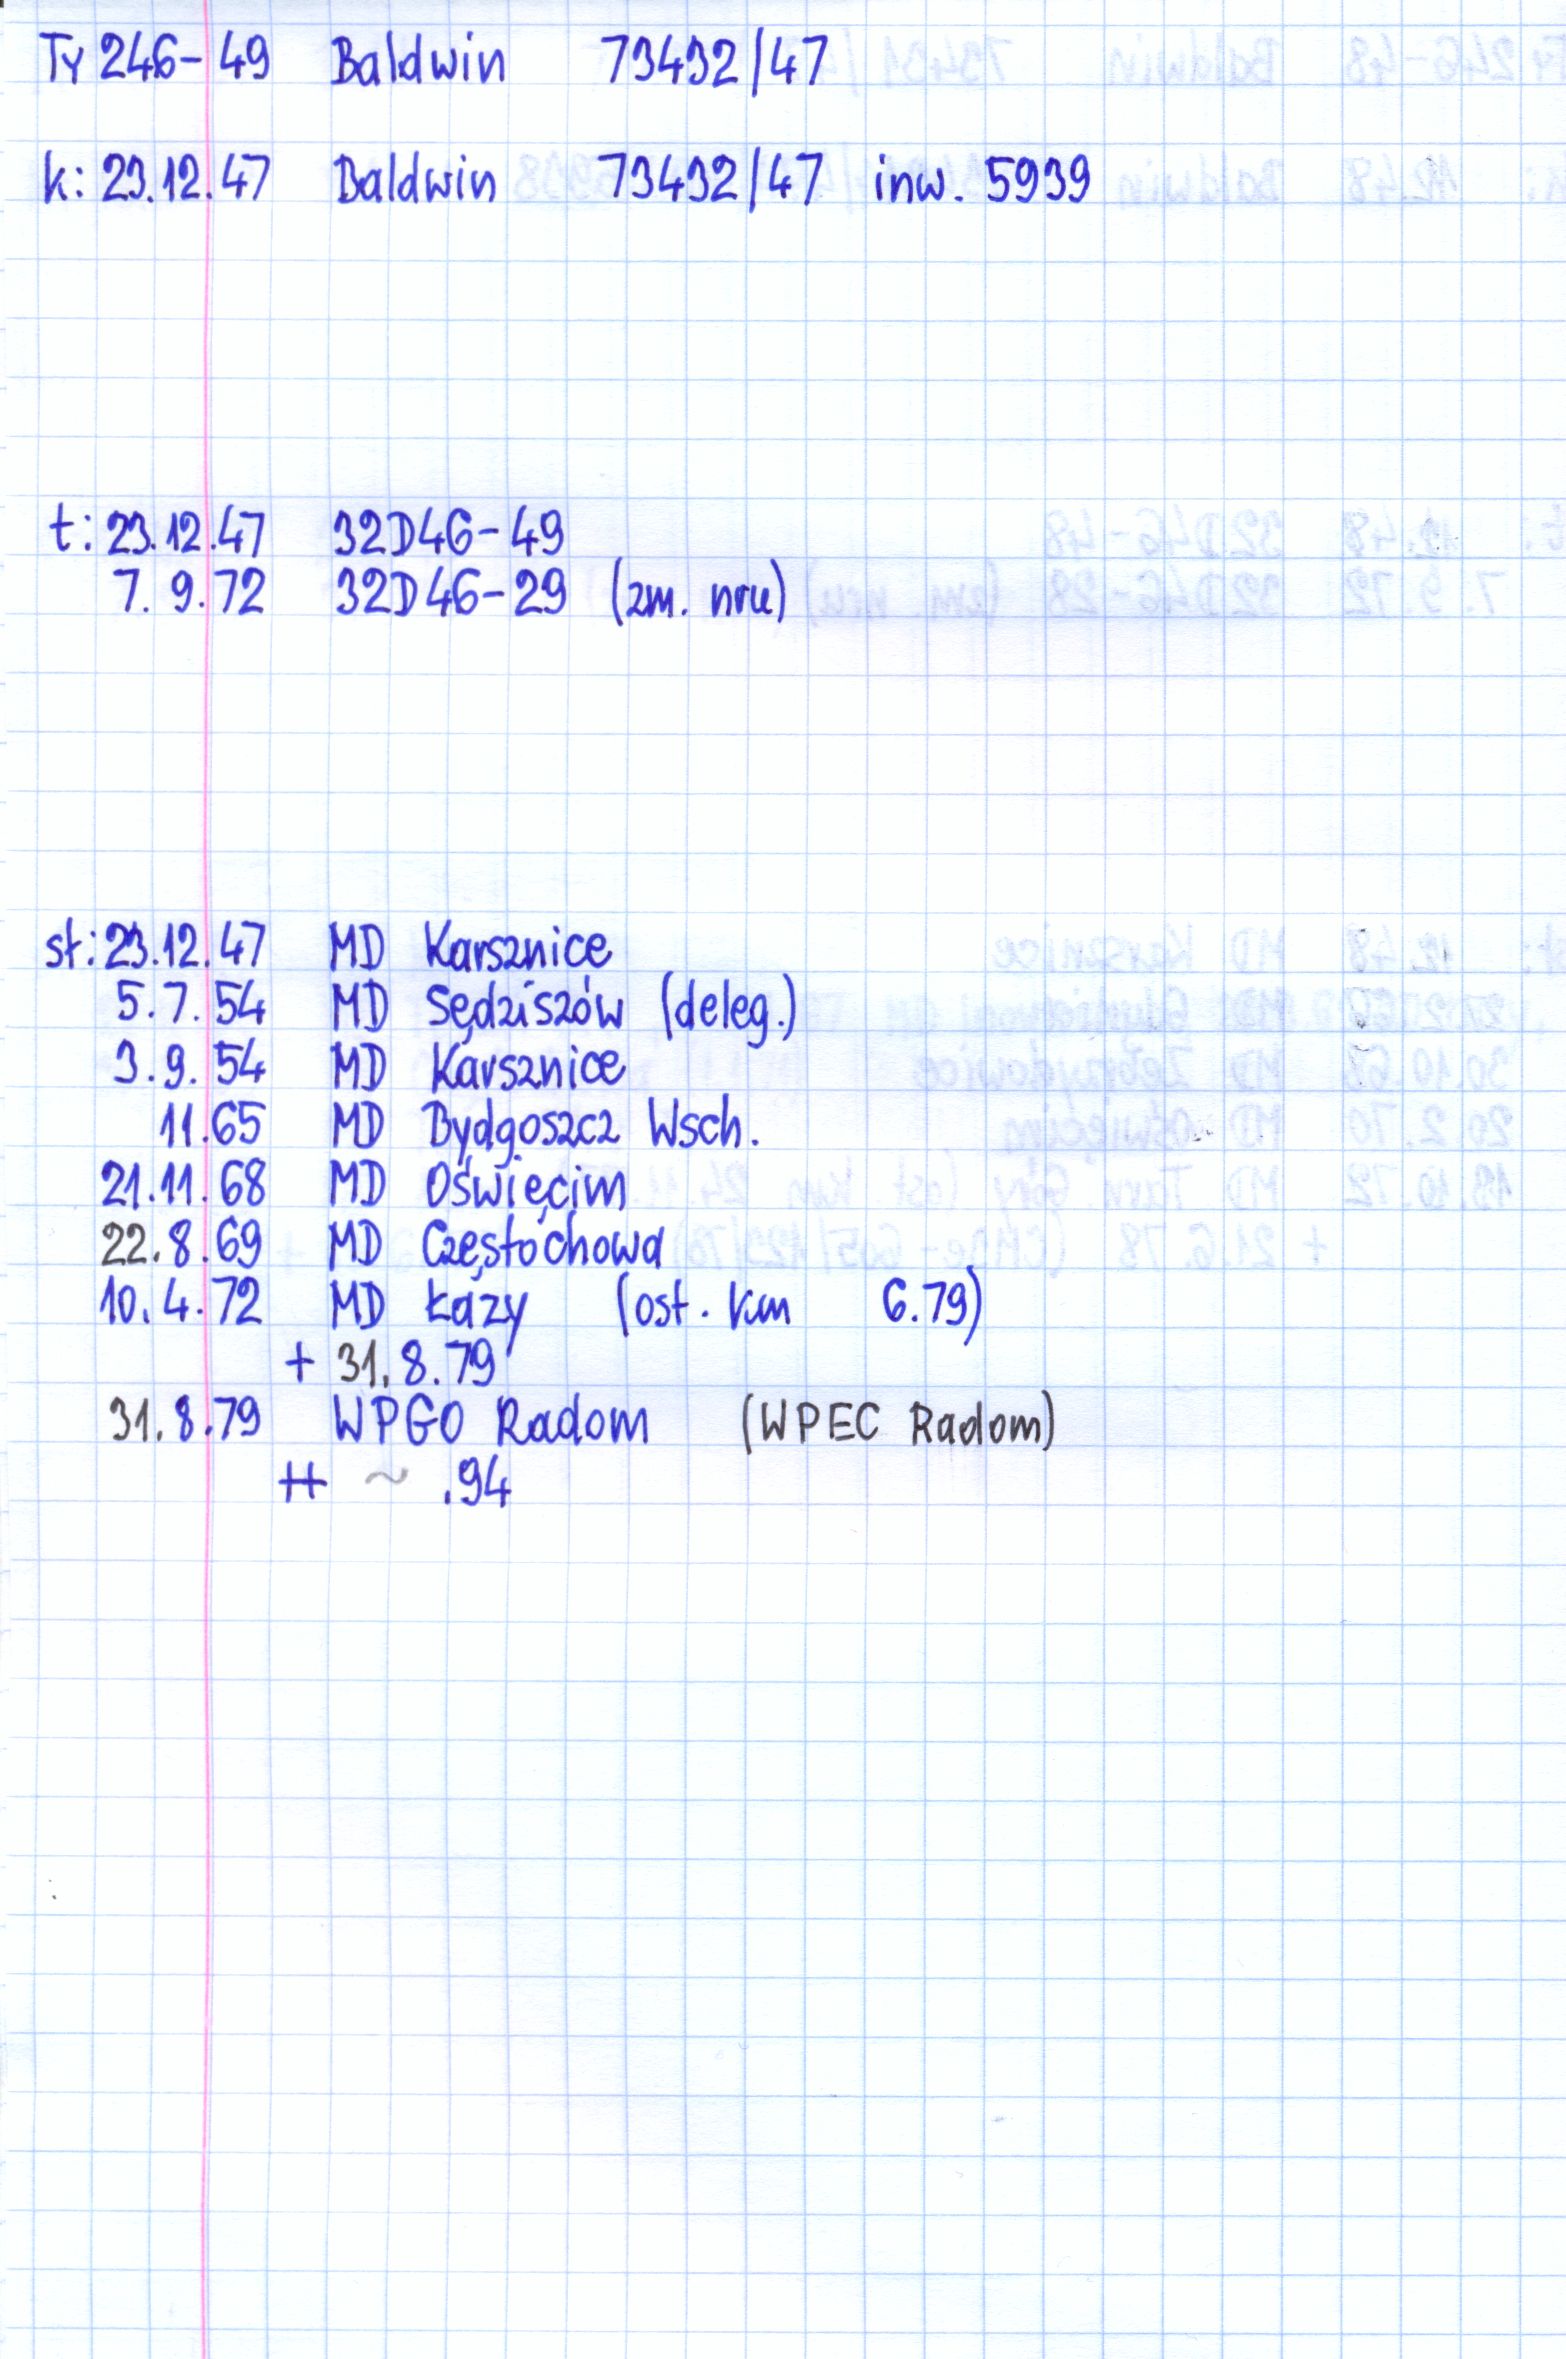 Ty 246-49 Baldwin 73432/47
k: 23.12.47 Baldwin 73432/47 inw. 5939
t: 23.12.47 32D46-49
7.9.72 32D46-29 (zm. nru)
st: 23.12.47 MD Karsznice
5.7.54 MD Sędziszów (deleg.)
3.9.54 MD Karsznice
11.65 MD Bydgoszcz Wsch.
21.11.68 MD Oświęcim
22.8.69 MD Częstochowa
10.4.72 MD Łazy (ost. km 6.79)
+ 31.8.79
31.8.79 WPGO Radom (WPEC Radom)
++ ~ .94